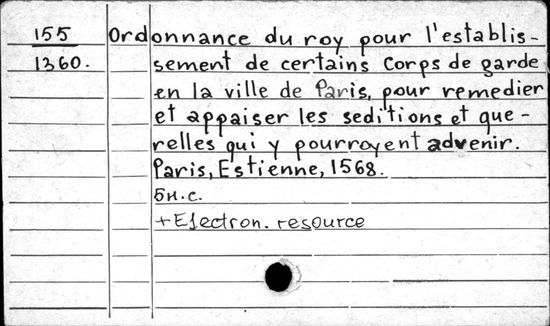 155 Ordonnance du roy pour l'establis-
1360. sement de certains Corps de garde
en la ville de Paris, pour remedier
et appaiser les seditions et que-
relles qui y pourroyent advenir.
Paris, Estienne, 1568.
5н.с.
+Electron. resource